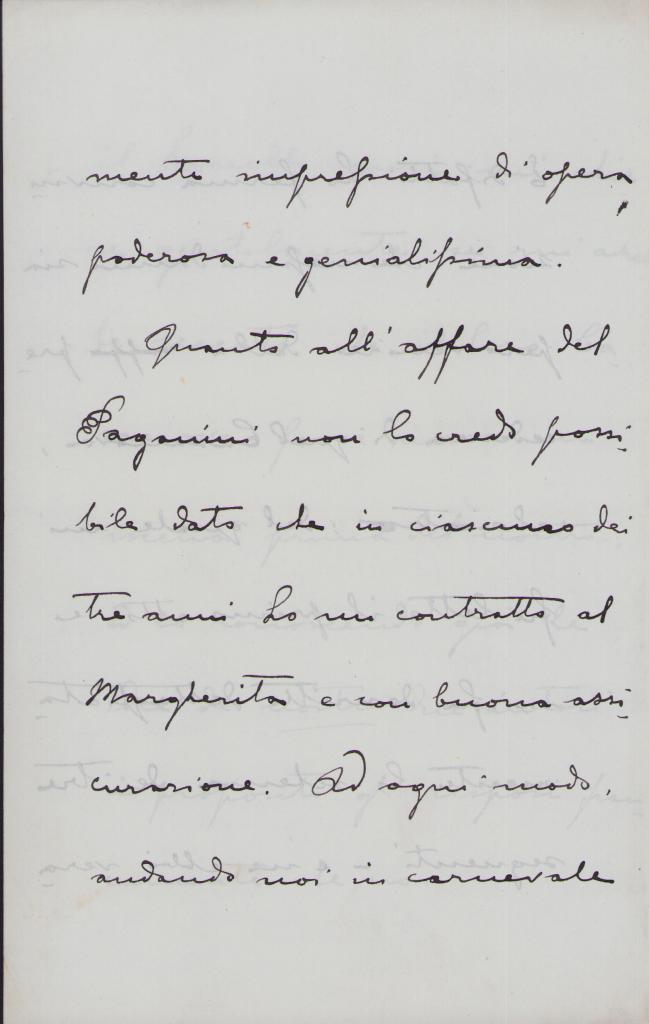 mente impressione di opera
poderosa e genialissima.
Quanto all'affare del
Paganini non lo credo possi-
bile dato che in ciascuno dei
tre anni ho un contratto al
Margherita e con buona assi-
curazione. Ad ogni modo,
andando noi in carnevale